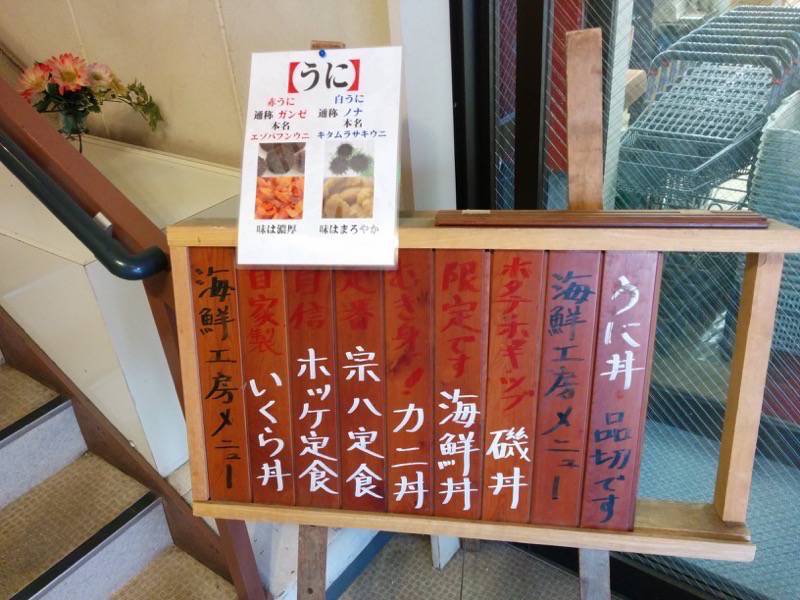 【うに】
赤うに
通称 ガンゼ
本名
エゾバフンウニ
味は濃厚
白うに
通称 ノナ
本名
キタムラサキウニ
味はまろやか
うに丼 品切です
海鮮工房メニュー
ホタテホッキツブ 磯丼
限定です 海鮮丼
むき身! カニ丼
定番 宗八定食
自信 ホッケ定食
自家製 いくら丼
海鮮工房メニュー